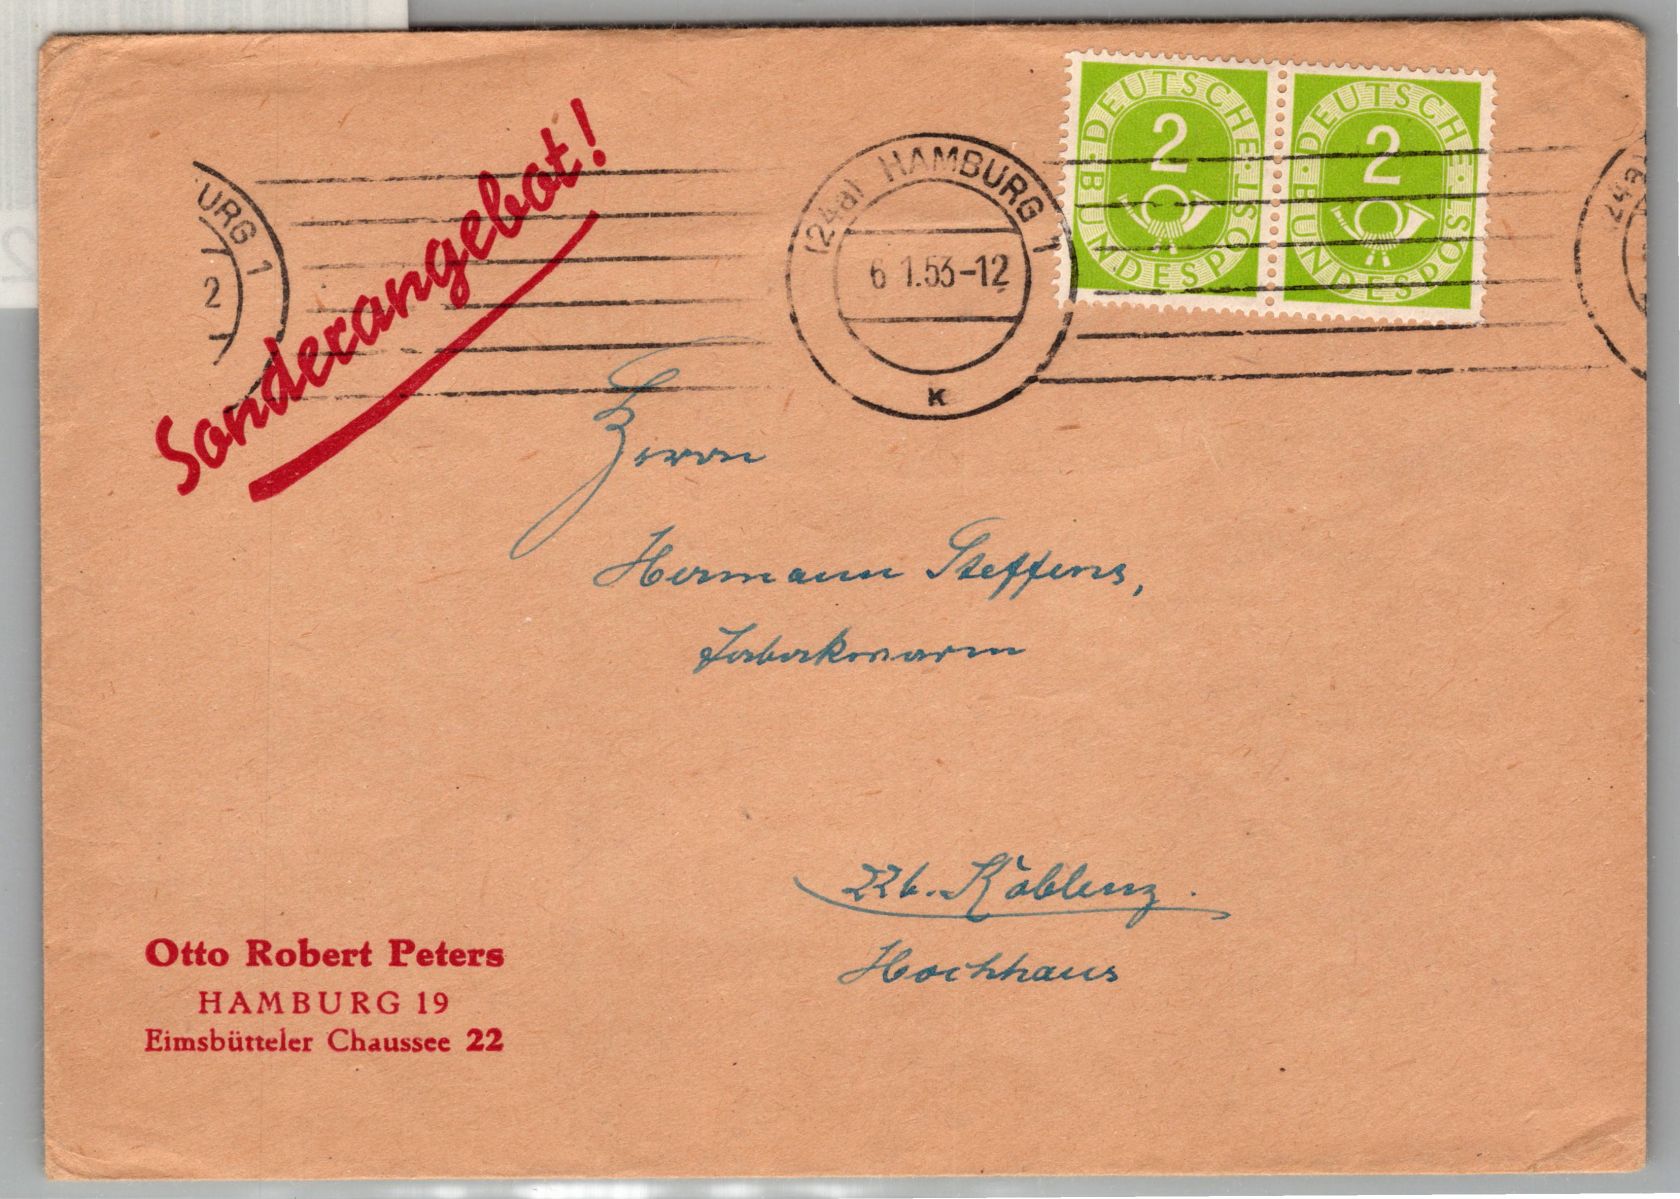 Sonderangebot!
URG 1
2
(24a) HAMBURG 1
6 1.53-12
K
DEUTSCHE BUNDESPOST
2
DEUTSCHE BUNDESPOST
2
24a
Herrn
Hermann Steffens,
22b. Koblenz.
Hochhaus
Otto Robert Peters
HAMBURG 19
Eimsbütteler Chaussee 22